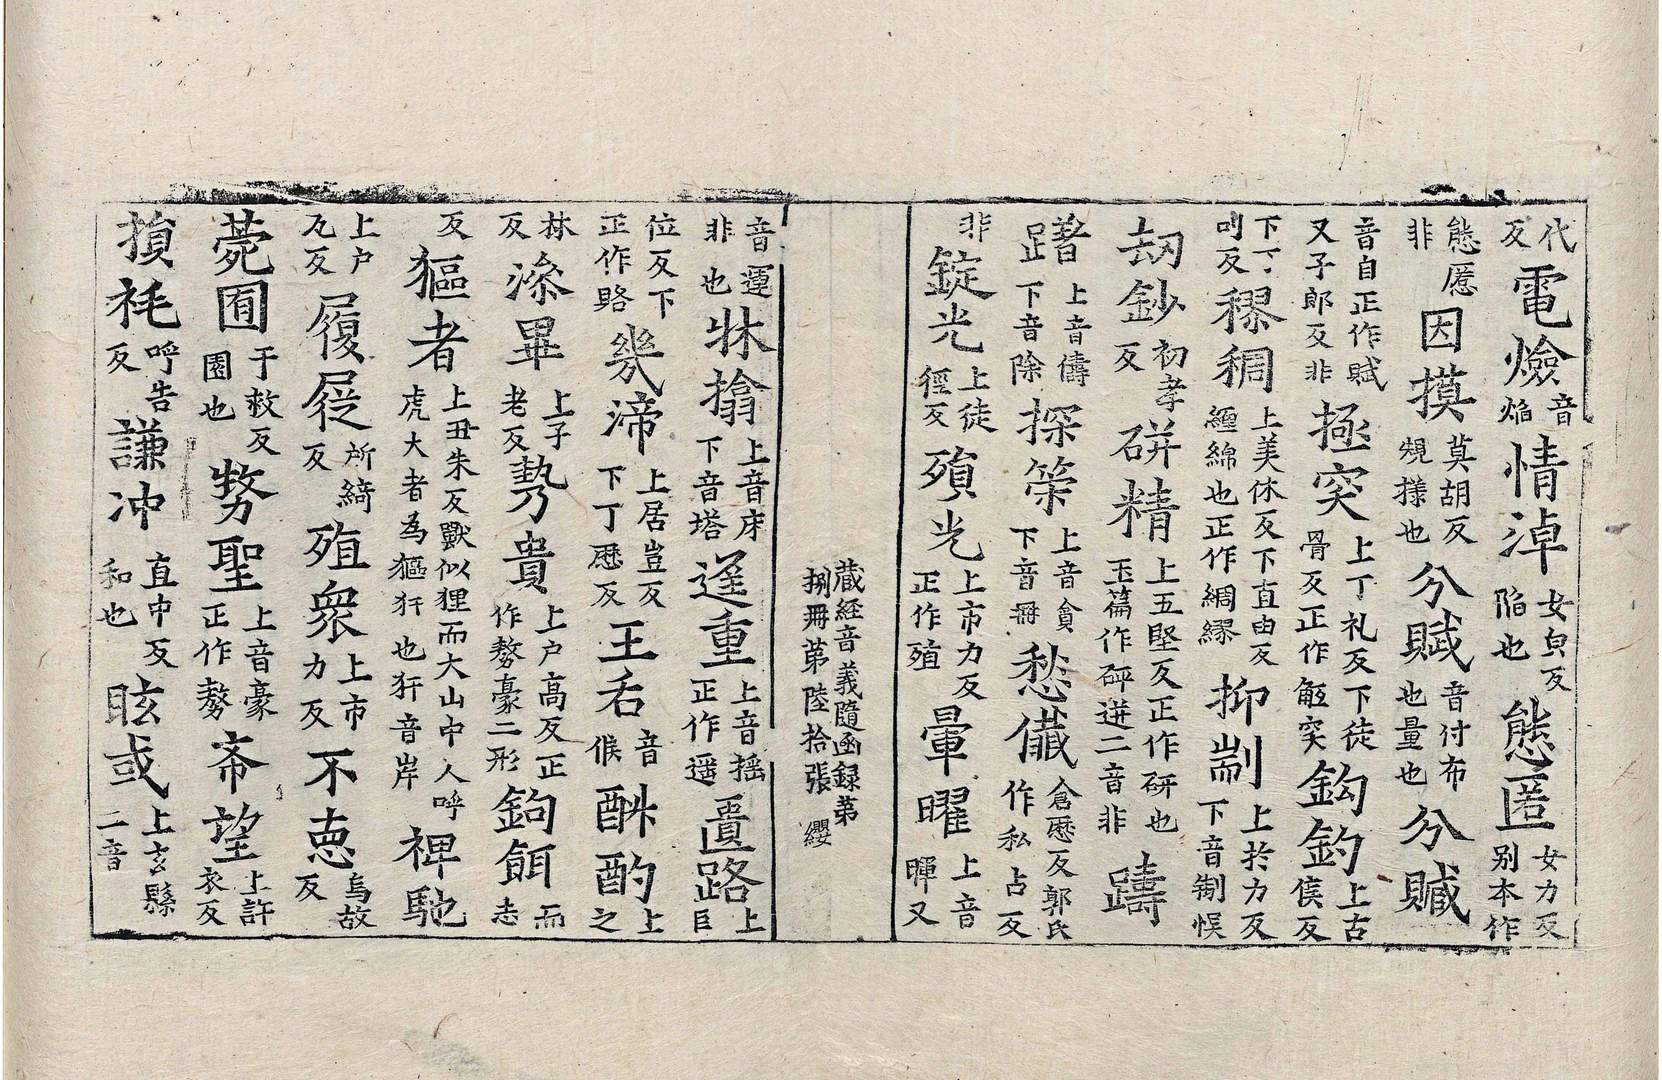 代反電燄音焰情淖女皃反陷也態匿女力反别本作
態慝非因摸莫胡反規搽也分賦音付布也量也分贓
音自正作賦又子郎反非拯突上丁礼反下徒骨反正作觝突鈎釣上古侯反
下丁叫反穋稠上美休反下直由反纏綿也正作綢繆抑剬上於力反下音制悮
刼鈔初孝反硑精上五堅反正作研也玉篇作砰迸二音非躊
躇上音儔下音除探筞上音貪下音冊愁儎倉歷反郭氏作私占反
非錠光上徒徑反殞光上市力反正作殖暈曜上音暉又
藏経音義隨函録第捌冊第陸拾張 纓
音運非也牀搨上音床下音塔遥重上音摇正作遥匱路上巨
位反下正作路㡬渧上居豈反下丁歷反王𠯑音候酬酌上之
林反漈畢上子老反勢貴上户高反正作𠢕豪二形鉤餌而志
反貙者上丑朱反獸似狸而大山中人呼虎大者為貙犴也犴音岸裨馳
上户九反履屣所綺反殖衆上市力反不恴烏故反
菀囿于救反園也𠢕聖上音豪正作𠢕希望上許衣反
損秏呼告反謙冲直中反和也眩或上玄縣二音